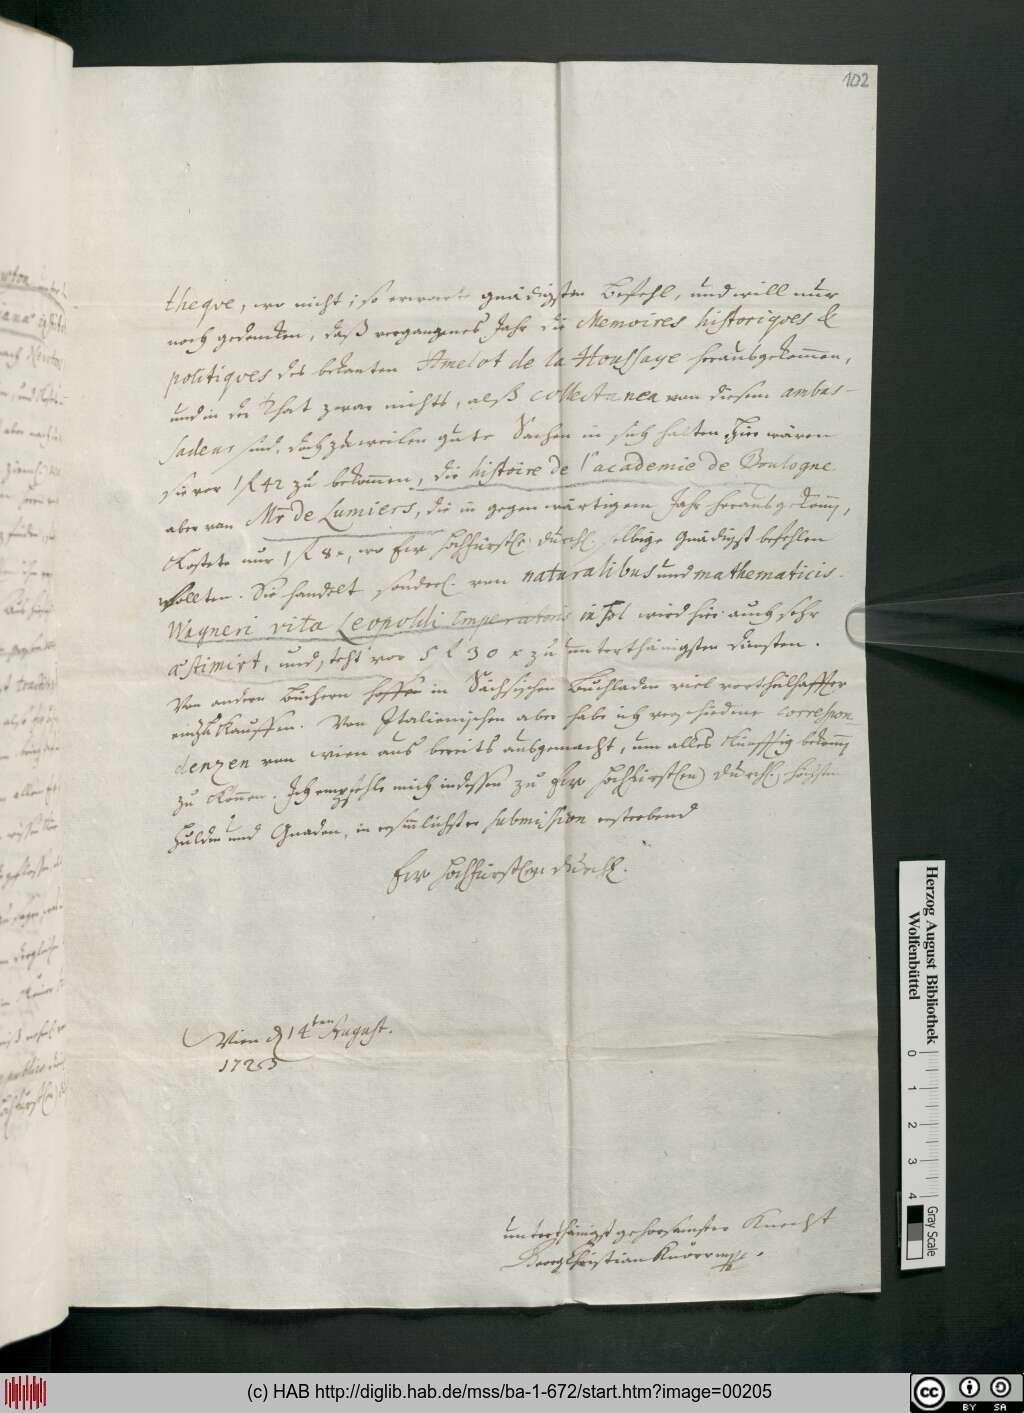 102
theqve, wo nicht, so erwarte gnädigsten Befehl, und will nur
noch gedencken, daß vergangenes Jahr die Memoires historiqves &
politiqves des bekanten Amelot de la Houssaye herausgekommen,
und in der That zwar nichts, alß Collectanea von diesem ambas-
sadeur sind, doch zuweilen gute Sachen in sich halten. Hier wären
sie vor 1 f 42 zu bekommen, die histoire de l'academie de Boulogne
aber von Mr de Lumiers, die in gegenwärtigem Jahr herausgekom̄,
Kostete nur 1 f 8 x, wo Ew Hochfürstl. Durchl. selbige Gnädigst befehlen
wollten. Sie handelt sonderl. von naturalibus und mathematicis.
Wagneri vita Leopoldi Imperatoris in fol wird hier auch sehr
æstimirt, und steht vor 5 f 30 x zu unterthänigsten diensten.
Von andern Büchern hoffe in Sächsischen Buchladen viel vortheilhaffter
einzukauffen. Von Italienischen aber habe ich verschiedene correspon-
denzen von wien aus bereits ausgemacht, um alles künfftig bekom̄
zu können. Ich empfehle mich indessen zu Ew Hochfürstl(en) Durchl. höchsten
Hulden und Gnaden, in ersinnlichster submission ersterbend
Ew Hochfürstlen Durchl.
Wien d 14ten August.
1725
unterthänigst gehorsamster Knecht
Georg Christian Knörr mpp.
Herzog August Bibliothek
Wolfenbüttel
0 1 2 3 4
Gray Scale
(c) HAB http://diglib.hab.de/mss/ba-1-672/start.htm?image=00205
cc BY SA